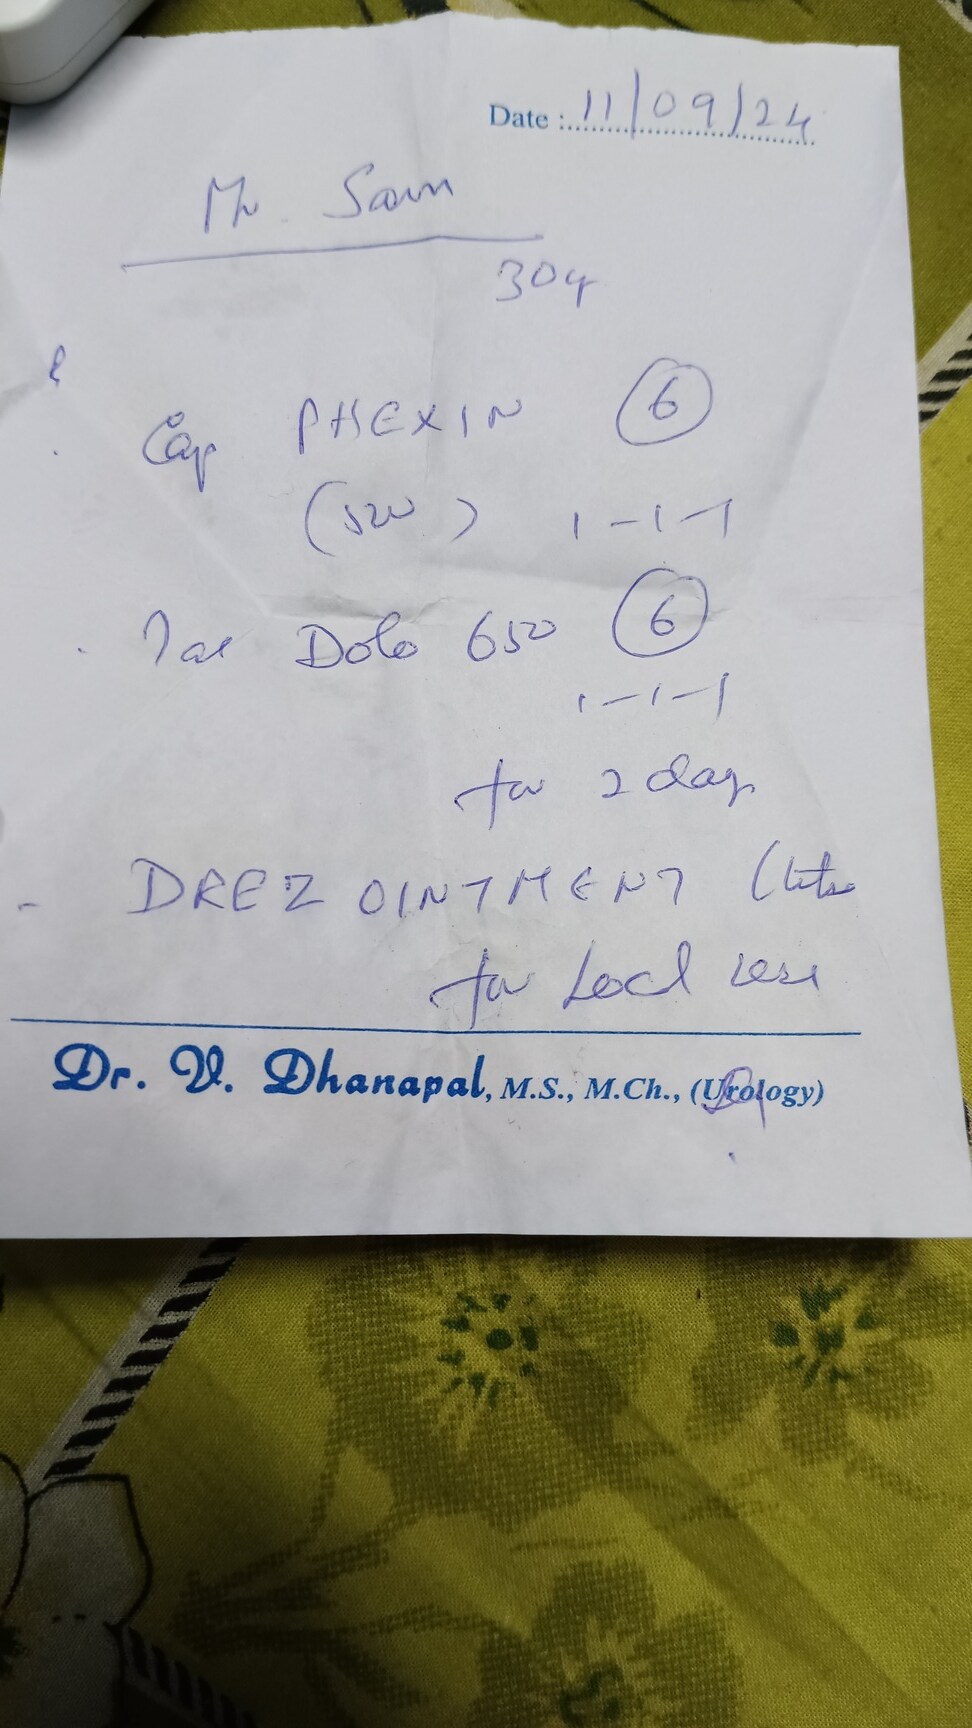 Date : 11/09/24
Mr. Sam
30y
Cap PHEXIN 6
(500) 1-1-1
Tab Dolo 650 6
1-1-1
for 2 days
DREZ OINTMENT
for Local use
Dr. V. Dhanapal, M.S., M.Ch., (Urology)